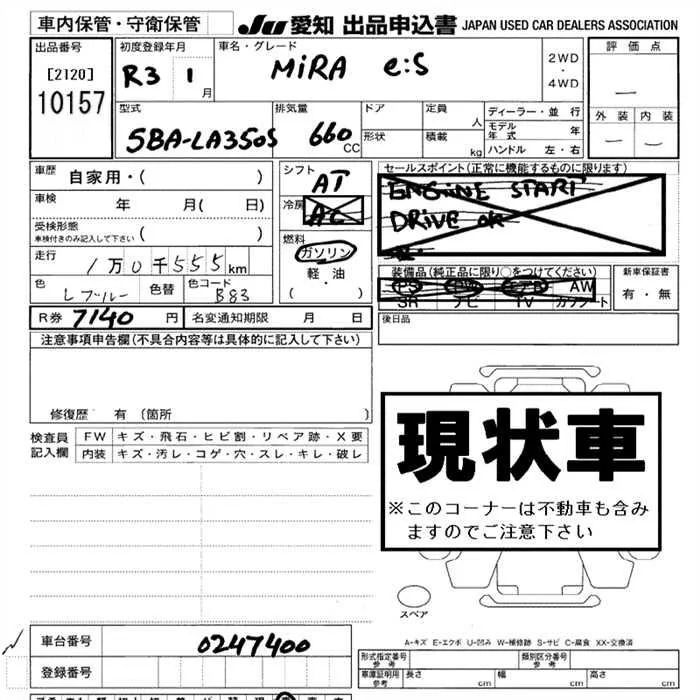 車内保管・守衛保管 JU 愛知 出品申込書 JAPAN USED CAR DEALERS ASSOCIATION
出品番号 初度登録年月 車名・グレード 評価点
[2120] R3 1 月 MiRA e:S 2WD・4WD ー
10157
型式 排気量 ドア 定員 ディーラー・並行 外装 内装
5BA-LA350S 660 CC 形状 積載 人 kg モデル年式 年 ー ー
ハンドル 左・右
車歴 自家用・( ) シフト AT セールスポイント(正常に機能するものに限ります)
車検 年 月( 日) 冷房 AC ENGiNE START
受検形態 DRiVE OK
車検付きのみ記入して下さい ( ) 燃料
走行 1万0千555km ガソリン 装備品(純正品に限り○をつけてください) 新車保証書
色 Lブルー 色替 色コード B83 軽・油 PS PW エアB AW 有・無
( ・ ) SR ナビ TV カワシート
R券 7140 円 名変通知期限 月 日 後日品
注意事項申告欄(不具合内容等は具体的に記入して下さい)
現状車
修復歴 有(箇所 )
※このコーナーは不動車も含み
ますのでご注意下さい
検査員 FW キズ・飛石・ヒビ割・リペア跡・X要
記入欄 内装 キズ・汚レ・コゲ・穴・スレ・キレ・破レ
スペア
A-キズ E-エクボ U-凹み W-補修跡 S-サビ C-腐食 XX-交換済
車台番号 0247400
型式指定番号 参考 類別区分番号 参考
登録番号
車庫証明用 参考 長さ cm 幅 cm 高さ cm